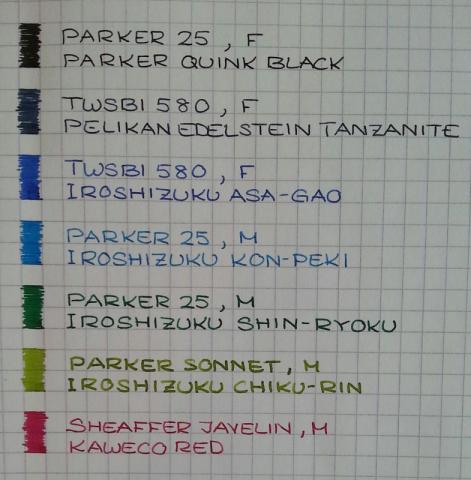 PARKER 25, F
PARKER QUINK BLACK
TWSBI 580, F
PELIKAN EDELSTEIN TANZANITE
TWSBI 580, F
IROSHIZUKU ASA-GAO
PARKER 25, M
IROSHIZUKU KON-PEKI
PARKER 25, M
IROSHIZUKU SHIN-RYOKU
PARKER SONNET, M
IROSHIZUKU CHIKU-RIN
SHEAFFER JAVELIN, M
KAWECO RED